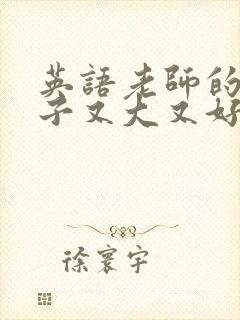 英語老師的
子又大又好
徐寰宇